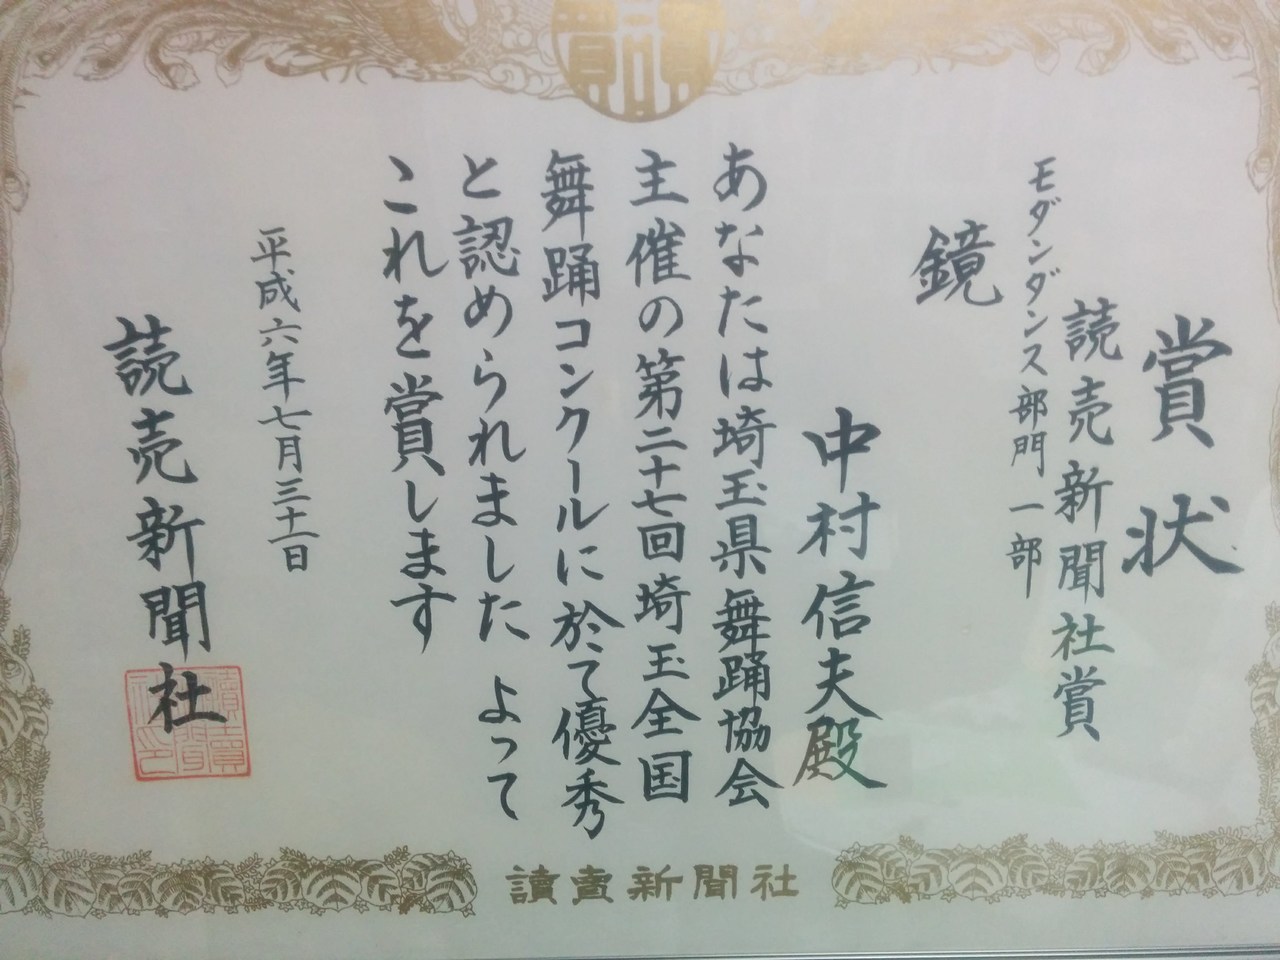 賞状
読売新聞社賞
モダンダンス部門一部
鏡
中村信夫殿
あなたは埼玉県舞踊協会
主催の第二十七回埼玉全国
舞踊コンクールに於て優秀
と認められました よって
これを賞します
平成六年七月三十一日
読売新聞社
讀賣新聞社